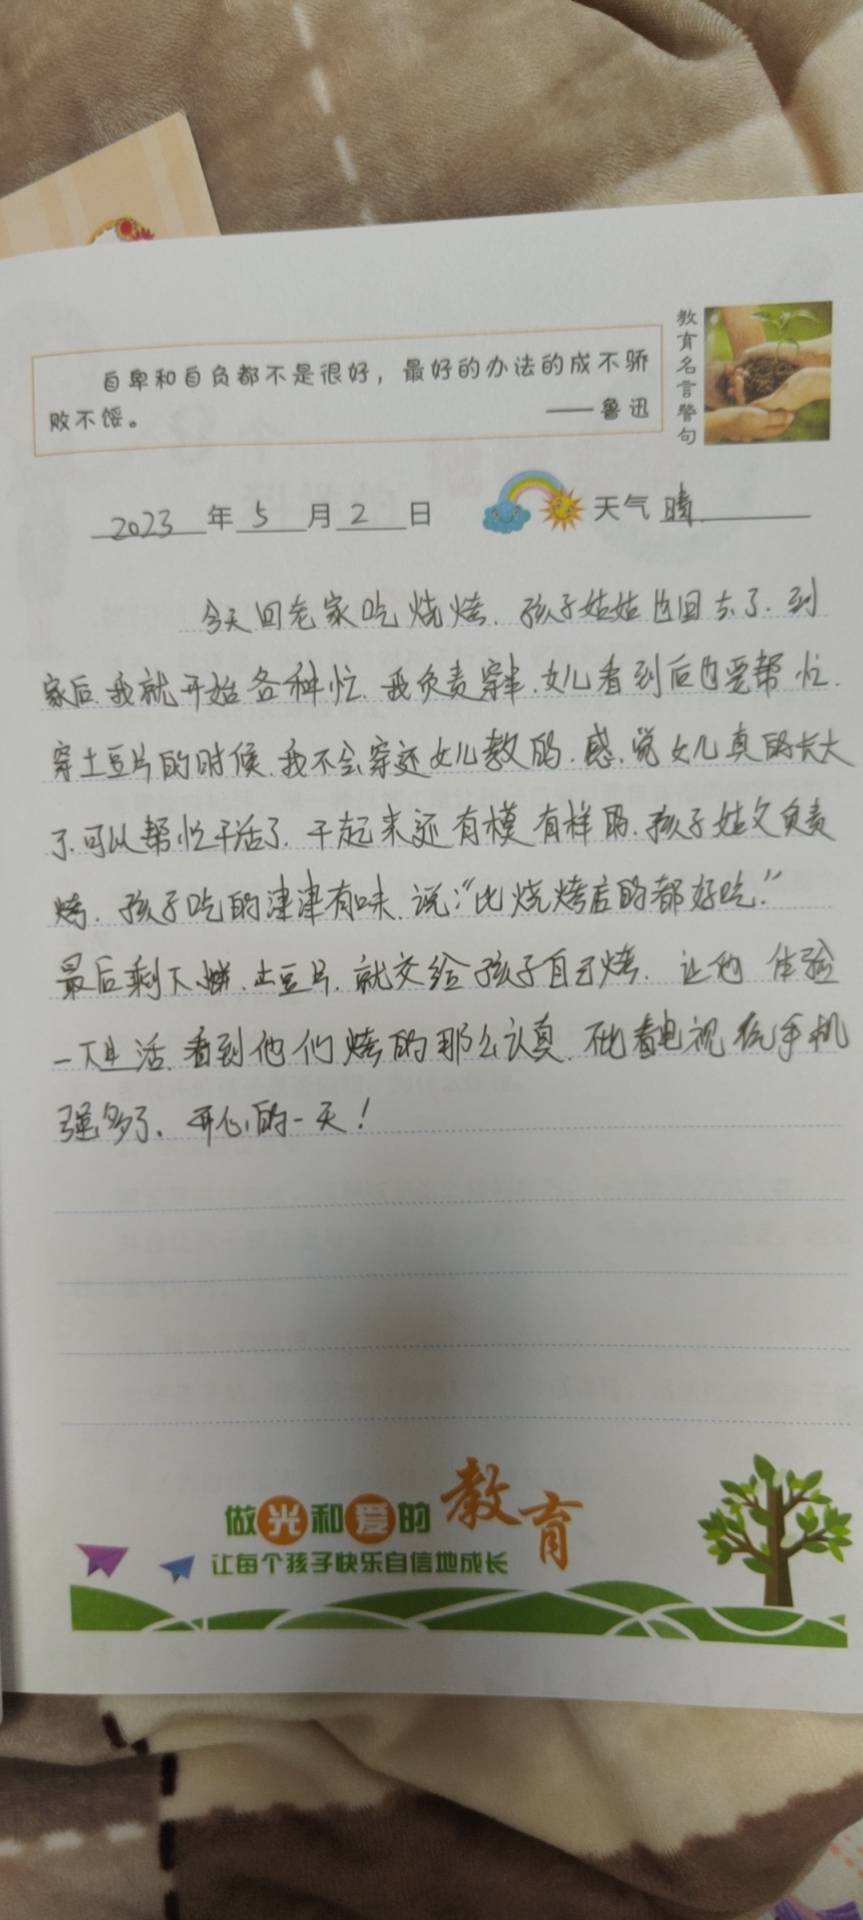 自卑和自负都不是很好，最好的办法的成不骄
败不馁。
——鲁迅
教育名言警句
2023年5月2日
天气 晴
今天回老家吃烧烤.孩子姑姑也回去了.到
家后.我就开始各种忙.我负责穿串.女儿看到后也要帮忙.
穿土豆片的时候.我不会穿还女儿教的.感觉女儿真的长大
了.可以帮忙干活了.干起来还有模有样的.孩子姑父负责
烤.孩子吃的津津有味.说:“比烧烤店的都好吃.”
最后剩下.土豆片.就交给孩子自己烤.让他体验
一下生活.看到他们烤的那么认真.在比看电视玩手机
强多了.开心的一天！
做光和爱的教育
让每个孩子快乐自信地成长